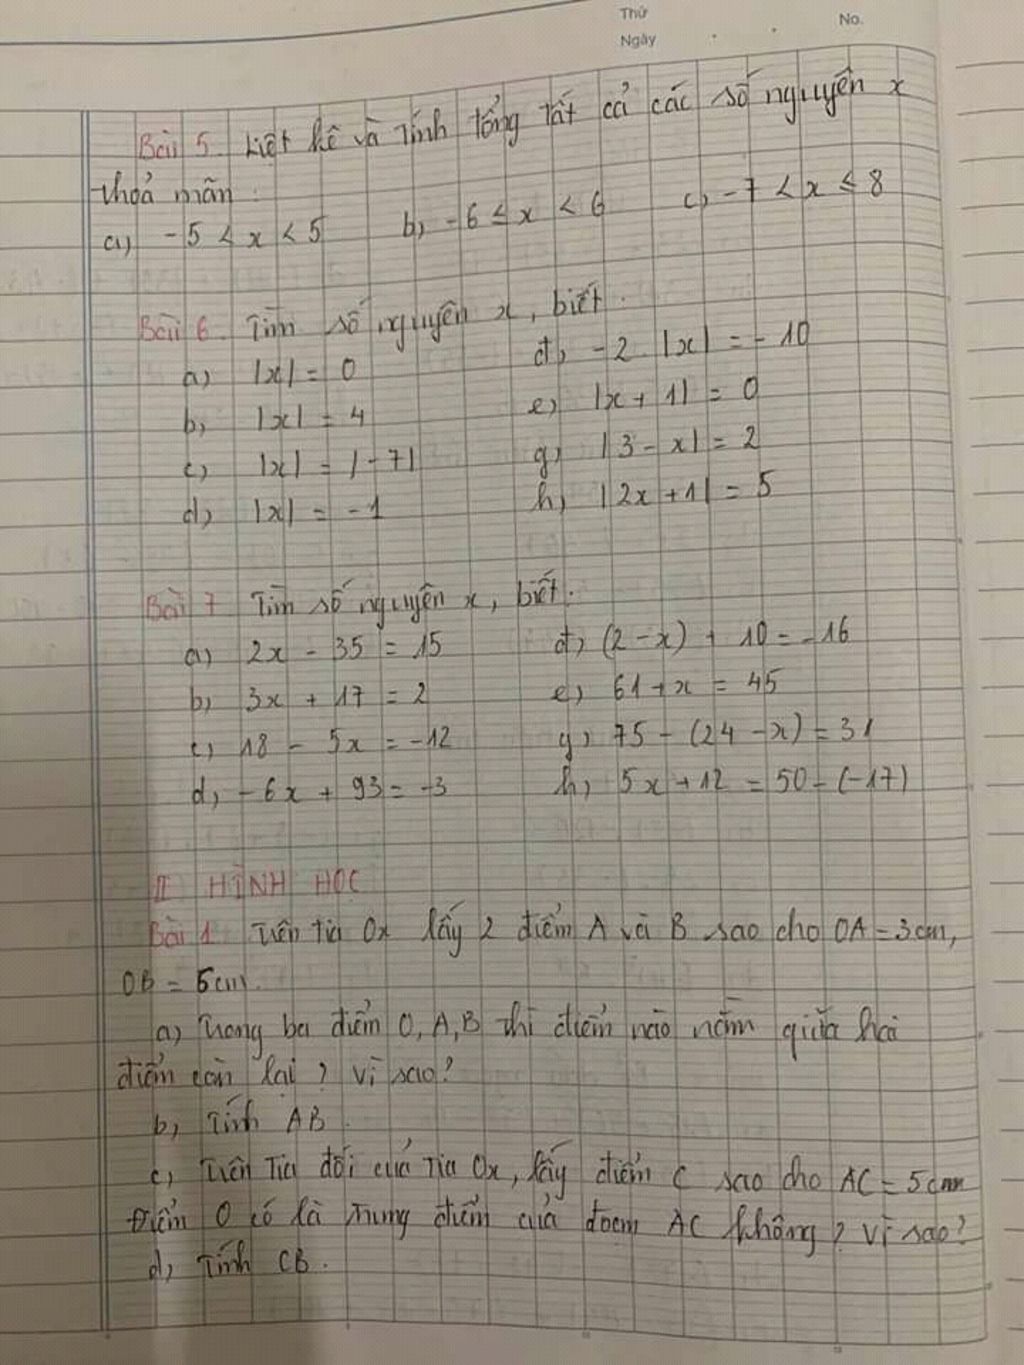 Thứ
No.
Ngày
Bài 5. Liệt kê và Tính tổng Tất cả các số nguyên x
thoả mãn:
a) -5 < x < 5 b) -6 ≤ x < 6 c) -7 < x ≤ 8
Bài 6. Tìm số nguyên x, biết.
a) |x| = 0 đ) -2 |x| = -10
b) |x| = 4 e) |x + 1| = 0
c) |x| = |-7| g) |3 - x| = 2
d) |x| = -1 h) |2x + 1| = 5
Bài 7 Tìm số nguyên x, biết.
a) 2x - 35 = 15 đ) (2 - x) + 10 = -16
b) 3x + 17 = 2 e) 61 + x = 45
c) 18 - 5x = -12 g) 75 - (24 - x) = 31
d) -6x + 93 = -3 h) 5x + 12 = 50 - (-17)
II HÌNH HỌC
Bài 1. Trên tia Ox lấy 2 điểm A và B sao cho OA = 3cm,
OB = 5cm.
a) Trong ba điểm O, A, B thì điểm nào nằm giữa hai
điểm còn lại? Vì sao?
b) Tính AB
c) Trên Tia đối của Tia Ox, lấy điểm C sao cho AC = 5cm
Điểm O có là trung điểm của đoạn AC không? Vì sao?
d) Tính CB.